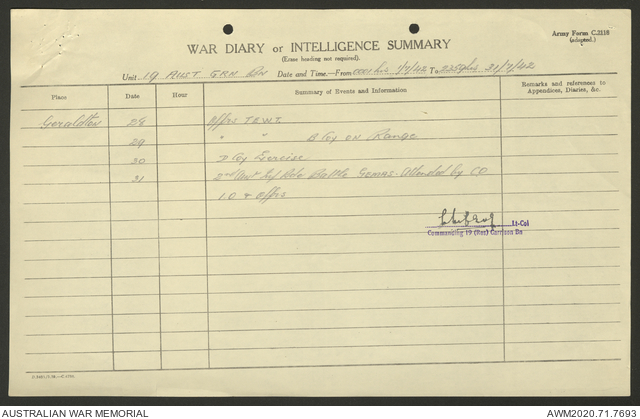 Army Form C.2118
(adapted.)
WAR DIARY or INTELLIGENCE SUMMARY
(Erase heading not required).
Unit 19 AUST. GRN BN Date and Time.—From 0001 hrs 1/7/42 To 2359 hrs 31/7/42
Place Date Hour Summary of Events and Information Remarks and references to
Appendices, Diaries, &c.
Geraldton 28 Offrs T.E.W.T.
29 " " B Coy on Range
30 D Coy Exercise
31 2nd Aust Bde Battle - Attended by CO
I.O & Offrs
Lt-Col
Commanding 19 (Res) Garrison Bn
AUSTRALIAN WAR MEMORIAL AWM2020.71.7693